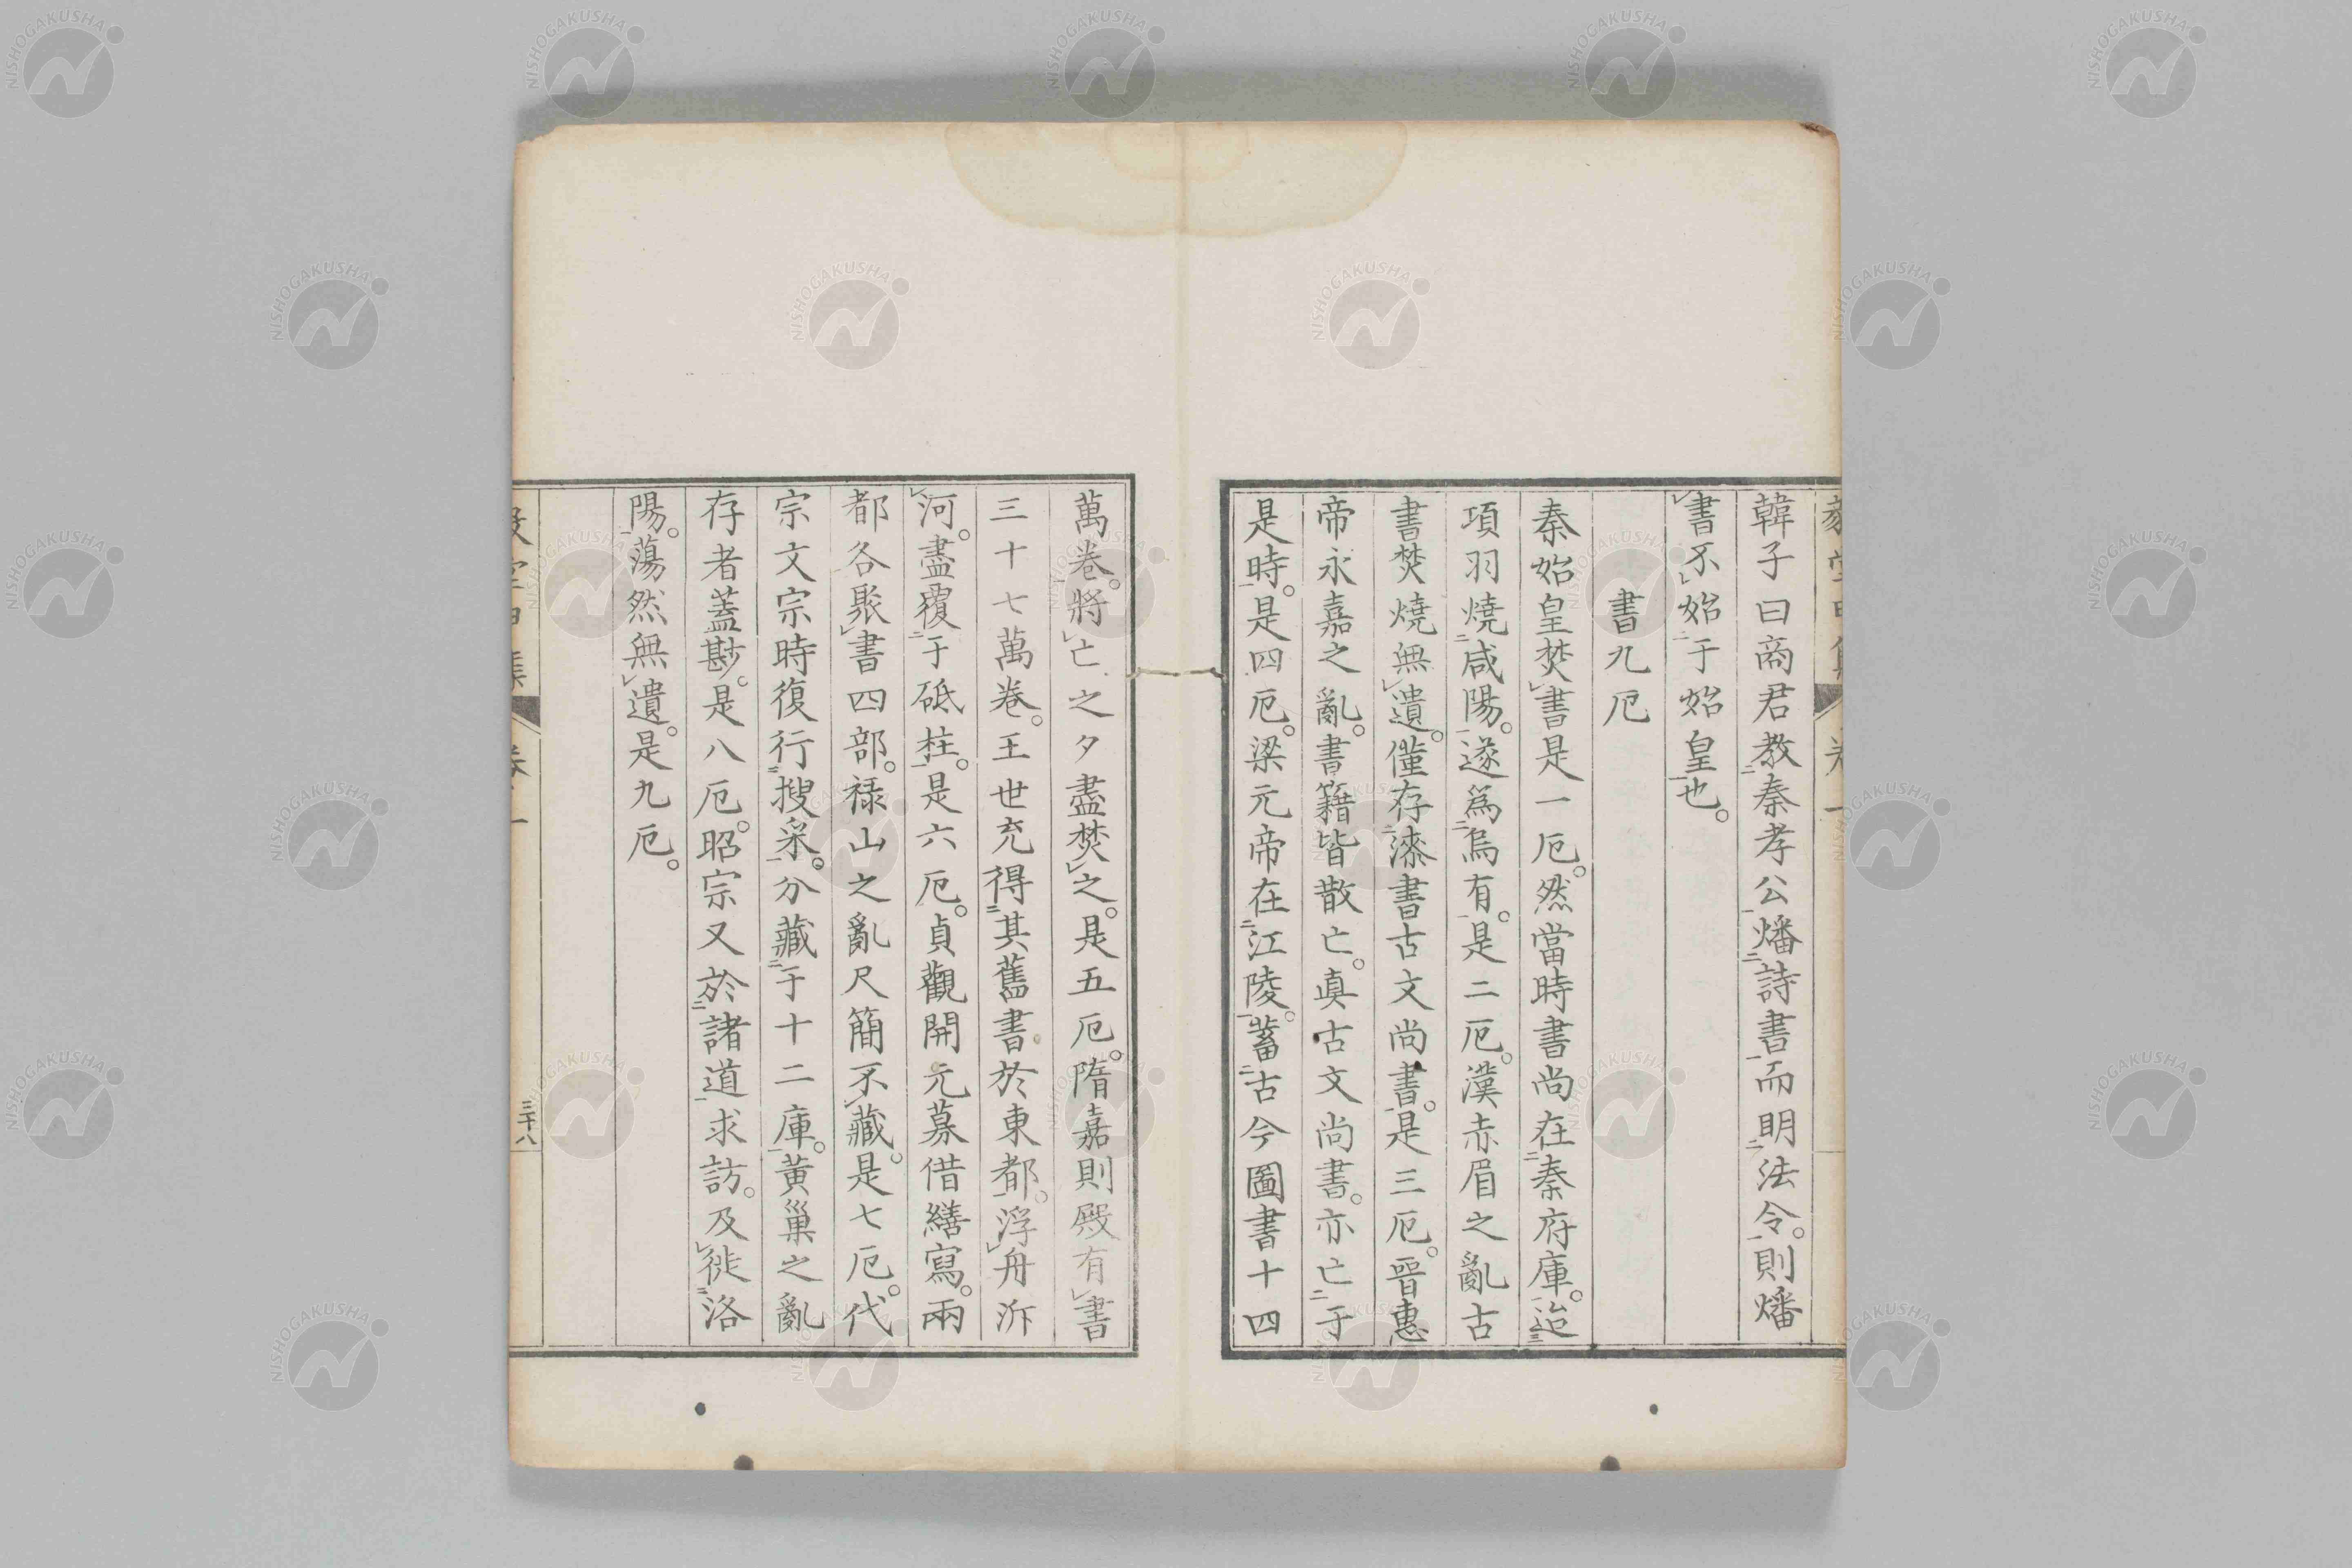 韓子曰商君教秦孝公燔詩書而明法令。則燔
書不始于始皇也。
書九厄
秦始皇焚書是一厄。然當時書尚在秦府庫。迨
項羽燒咸陽。遂爲烏有。是二厄。漢赤眉之亂古
書焚燒無遺。僅存漆書古文尚書。是三厄。晉惠
帝永嘉之亂。書籍皆散亡。眞古文尚書。亦亡于
是時。是四厄。梁元帝在江陵。蓄古今圖書十四
萬卷。將亡之夕盡焚之。是五厄。隋嘉則殿有書
三十七萬卷。王世充得其舊書於東都。浮舟泝
河。盡覆于砥柱。是六厄。貞觀開元募借繕寫。兩
都各聚書四部。禄山之亂尺簡不藏。是七厄。代
宗文宗時復行搜采。分藏于十二庫。黄巢之亂
存者蓋尠。是八厄。昭宗又於諸道求訪。及徙洛
陽。蕩然無遺。是九厄。
三十八
NISHOGAKUSHA